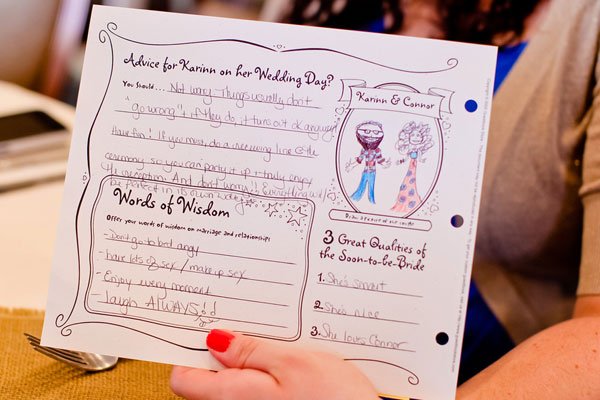 Advice for Karinn on her Wedding Day?
You should... Not worry. Things usually don't
"go wrong" & if they do, it turns out ok anyway!
Have fun! If you must, do a receiving line @ the
ceremony so you can party it up & truly enjoy
the reception. And don't worry!! Everything will
be perfect in its own way.
Words of Wisdom
Offer your words of wisdom on marriage and relationships
- Don't go to bed angry
- have lots of sex / makeup sex
- Enjoy every moment
- laugh ALWAYS!!
Karinn & Connor
Draw a picture of the couple
3 Great Qualities of
the Soon-to-be-Bride
1. She's smart
2. She's nice
3. She loves Connor